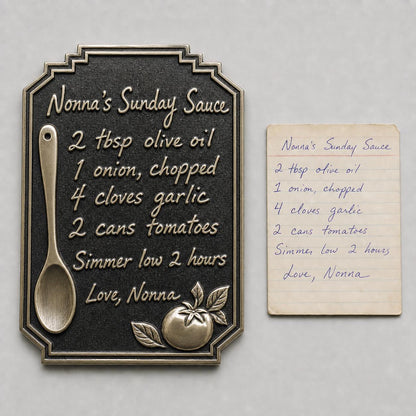 Nonna's Sunday Sauce
2 tbsp olive oil
1 onion, chopped
4 cloves garlic
2 cans tomatoes
Simmer low 2 hours
Love, Nonna
Nonna's Sunday Sauce
2 tbsp olive oil
1 onion, chopped
4 cloves garlic
2 cans tomatoes
Simmer low 2 hours
Love, Nonna